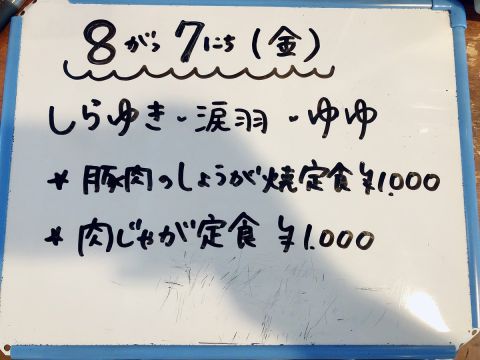 8がつ7にち(金)
しらゆき・涙羽・ゆゆ
* 豚肉のしょうが焼定食 ¥1,000
* 肉じゃが定食 ¥1,000